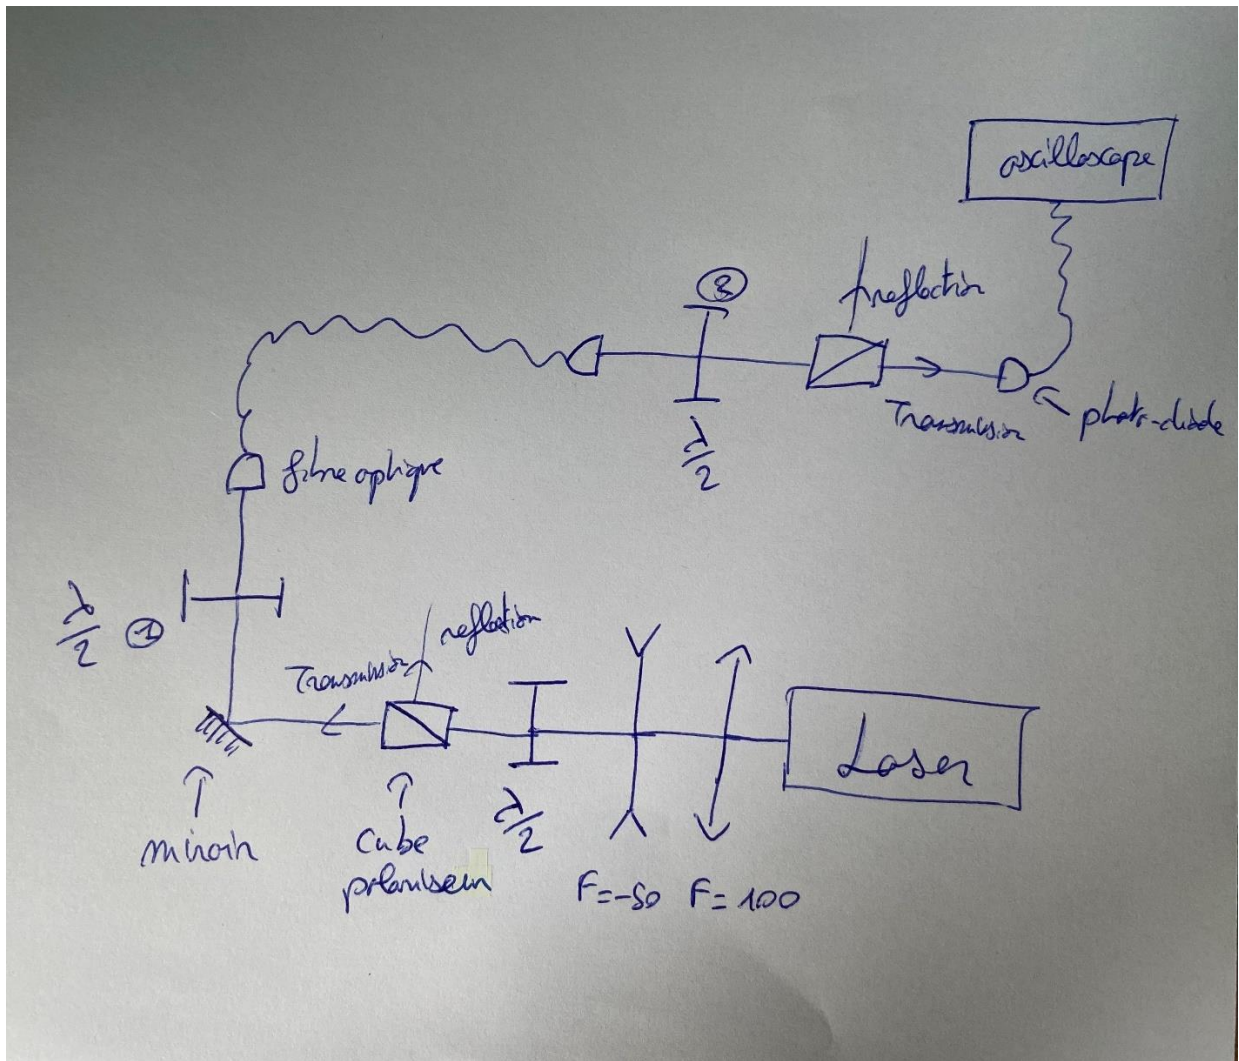 oscilloscope
②
reflection
λ/2
Transmission
photo-diode
fibre optique
λ/2 ①
reflection
Transmission
Laser
λ/2
miroir
Cube
polariseur
F=-50 F= 100